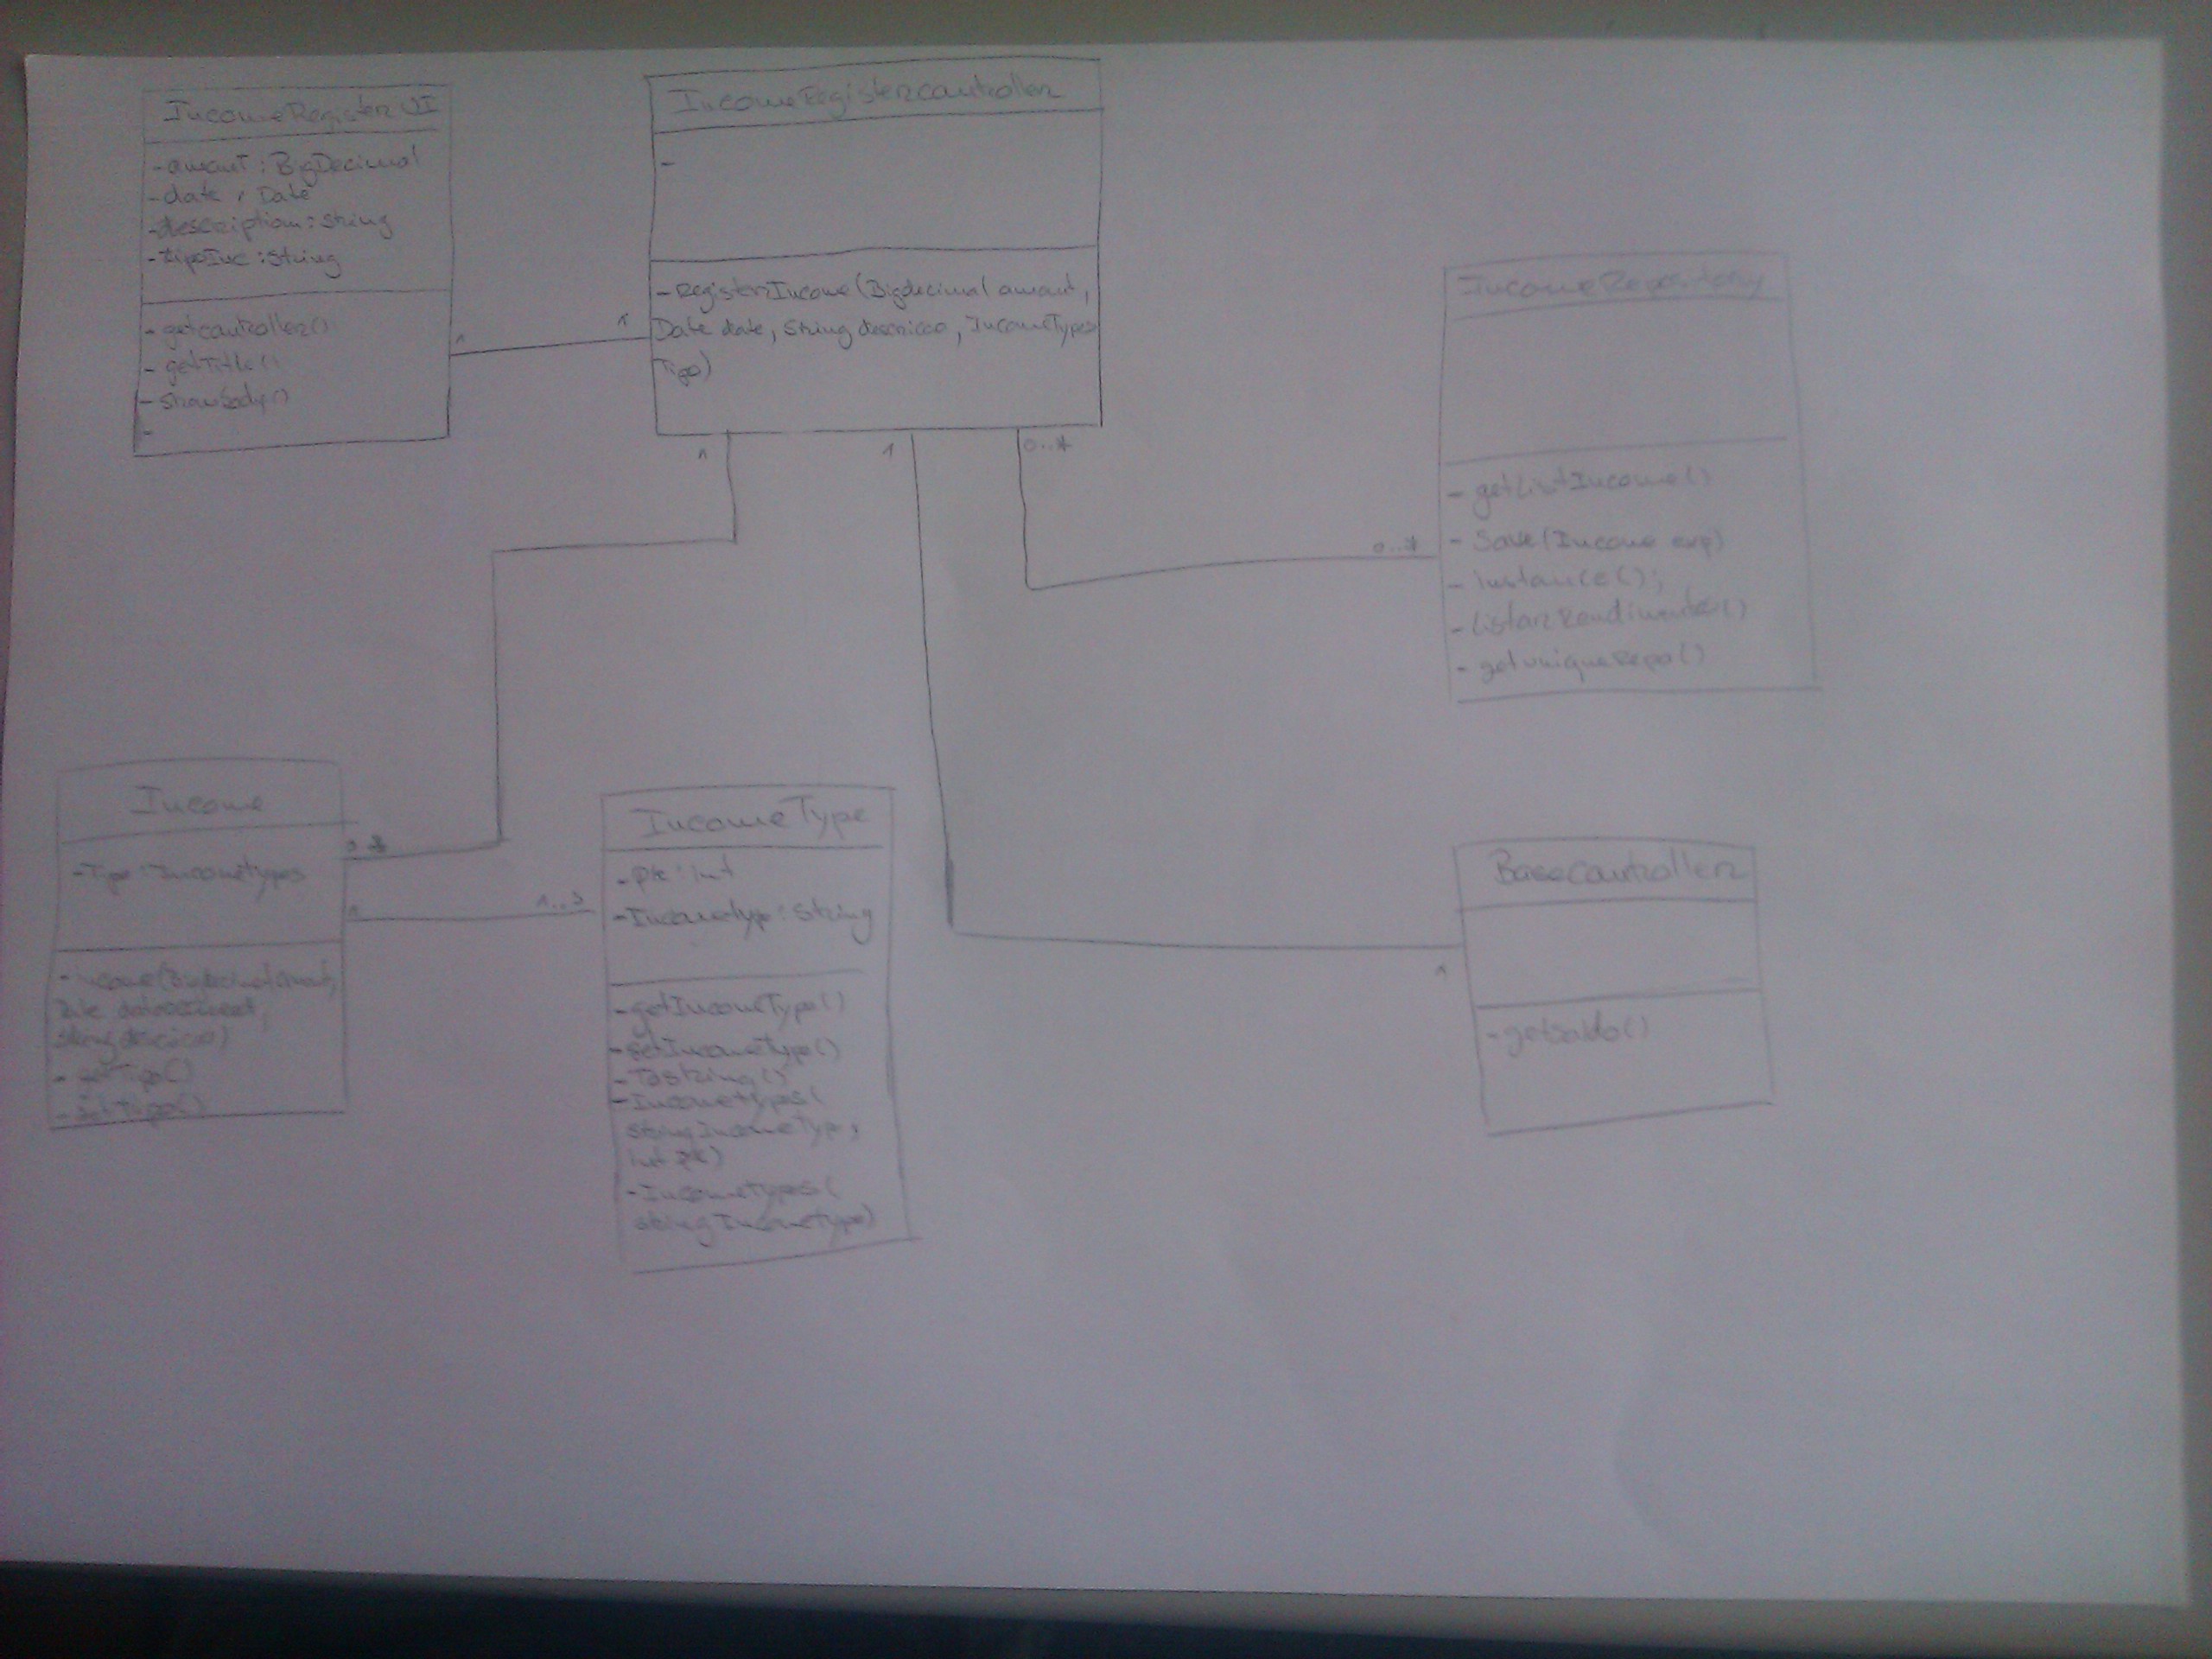 IncomeRegisterUI
-amout : BigDecimal
-date : Date
-description : String
-tipoInc : String
- getcontroller()
- getTitle()
- showBody()
-
1
1
IncomeRegistercontroller
-
-RegisterIncome(Bigdecimal amount,
Date date, String descricao, IncomeTypes
Tipo)
1
1
0..*
IncomeRepository
- getListIncome()
- Save(Income exp)
- instance();
- ListarRendimentos()
- getuniqueRepo()
0..*
Income
-Tipo : Incometypes
-income(BigDecimal amount,
Date
String descricao)
- getTipo()
- setTipo()
1
1..
IncomeType
-Pk : int
-Incometype : String
-getIncomeType()
-setIncomeType()
-ToString()
-Incometypes(
stringIncomeType,
int pk)
-Incometypes(
stringIncomeType)
Basecontroller
-getsaldo()
1